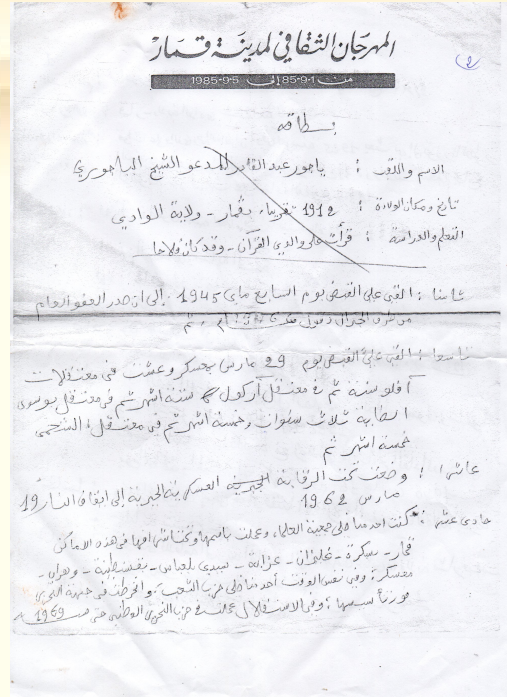 المهرجان الثقافي لمدينة قمار
من 1-9-85 إلى 5-9-1985
2
بطاقة
الاسم واللقب : باجور عبد القادر المدعو الشيخ الباجوري
تاريخ ومكان الولادة : 1912 تقريبا، بقمار - ولاية الوادي
التعلم والدراسة : قرأت على والدي القرآن - وقد كان فلاحا
ثامنا : القي علي القبض يوم السابع ماي 1945 إلى ان صدر العفو العام
من طرف الجنرال دغول ثم
تاسعا : القي علي القبض يوم 29 مارس بمعسكر وعشت في معتقلات
آفلو سنة ثم في معتقل آركول ستة اشهر ثم في معتقل بوسوي
الضاية ثلاث سنوات وخمسة اشهر ثم في معتقل
خمسة اشهر ثم
عاشرا : وضعت تحت الرقابة العسكرية الجبرية إلى ايقاف النار 19
مارس 1962
حادي عشر : كنت احد مناضلي جمعية العلماء وعملت باسمها وتحت اشرافها في هذه الاماكن
قمار - بسكرة - غليزان - عزابة - سيدي بلعباس - قسنطينة - وهران -
معسكر، وفي نفس الوقت أحد مناضلي حزب الشعب، وانخرطت في جبهة التحرير
فور تأسيسها، وفي الاستقلال عملت في حزب التحرير الوطني حتى 1969